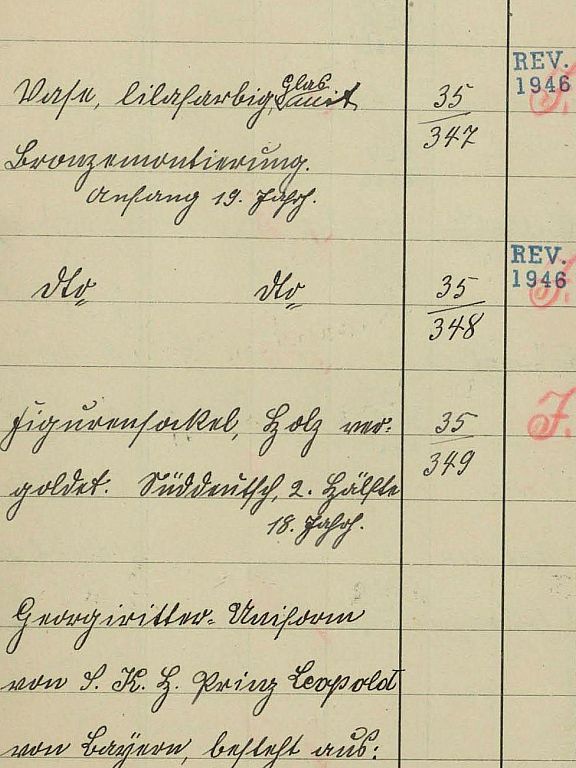 Vase, lilafarbig, Glas mit
35
REV.
1946
347
Bronzemontierung.
Anfang 19. Jahrh.
dto dto
35
REV.
1946
348
Figurensockel, Holz ver-
35
J.
goldet. Süddeutsch, 2. Hälfte
349
18. Jahrh.
Georgiritter-Uniform
von S. K. H. Prinz Leopold
von Bayern, besteht aus: